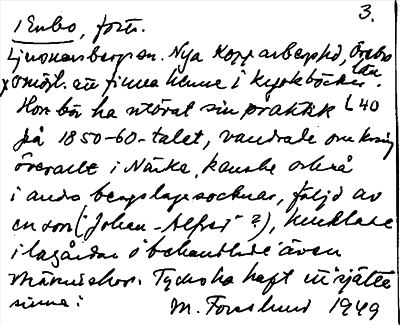 1 Enbo, forts. 3.
Ljusnarsbergsn. Nya Kopparberget, Örebro län
x omöjl. att finna henne i kyrkböcker. L 40
Hon bör ha utövat sin praktik
på 1850-60-talet, vandrade omkring
överallt i Närke, kanske också
i andra bergslagssocknar, följd av
en son ("Johan-Alfred"?),
i lagårdar o behandlade även
människor. Tycks ha haft ett sjätte
sinne. M. Forslund 1949